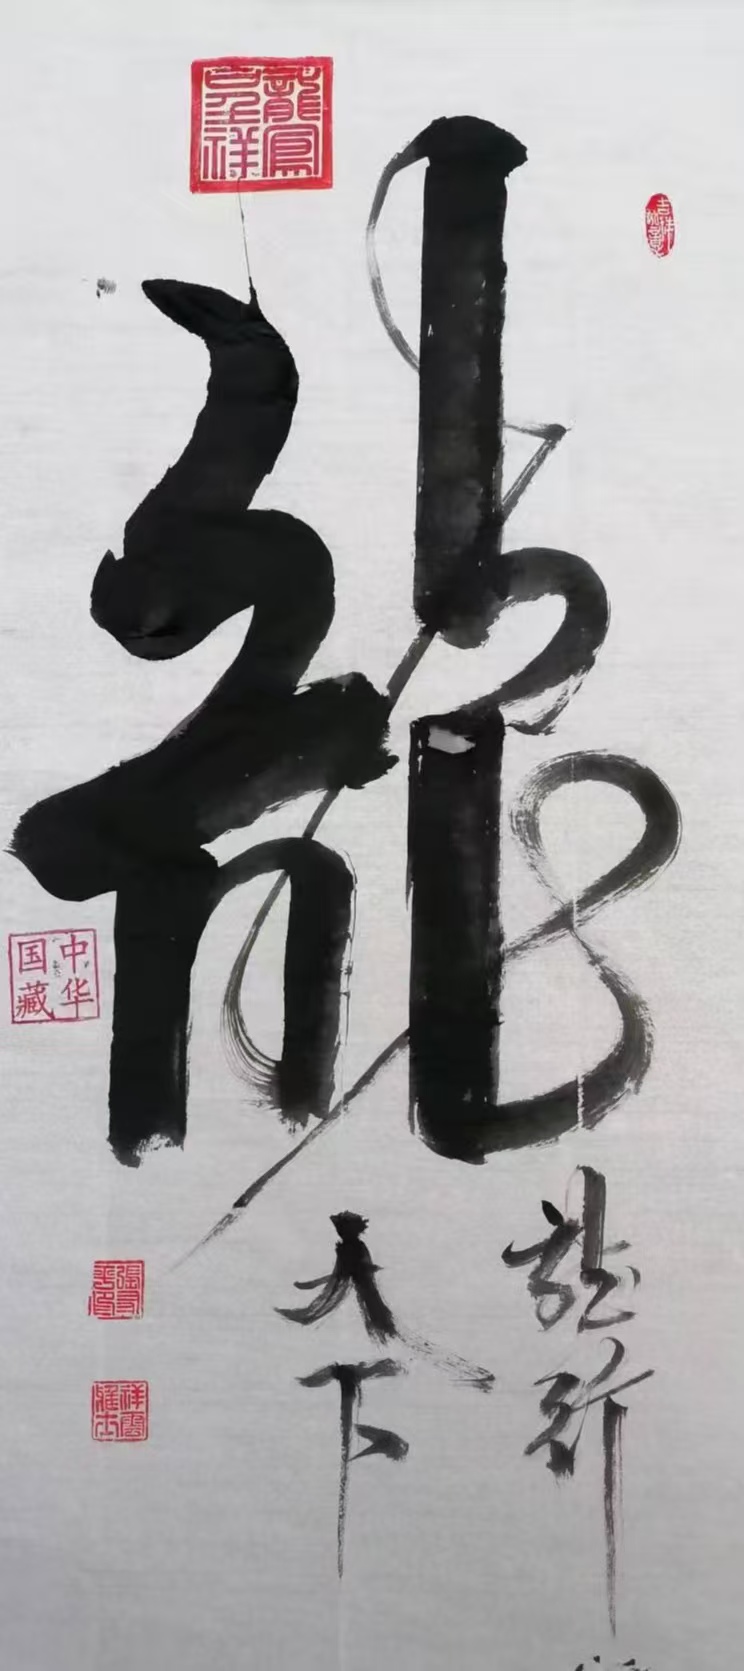 龍
龍行
天下
龍鳳呈祥
中华
国藏